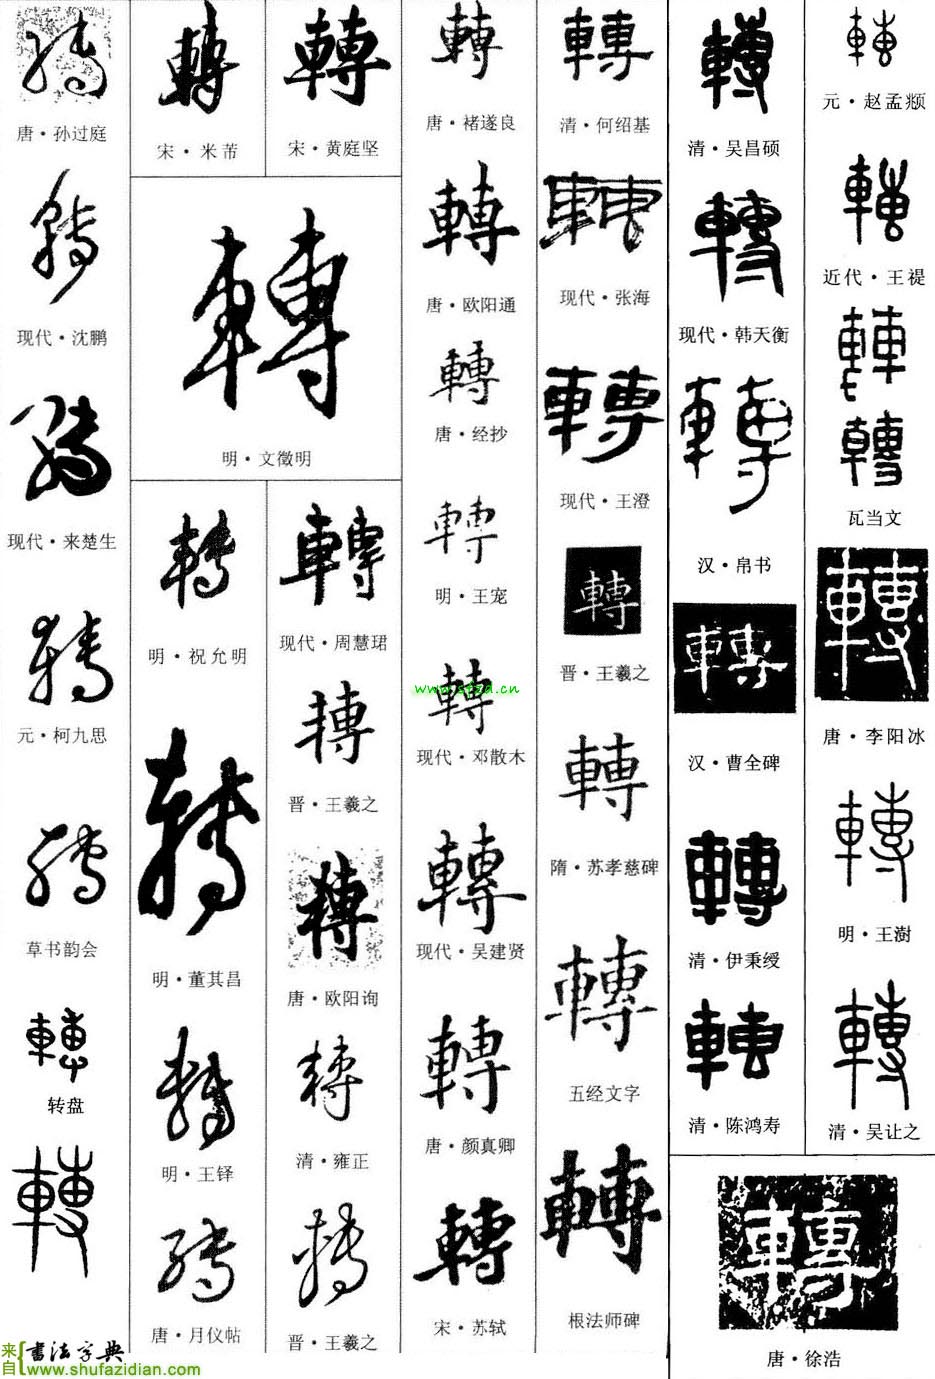 轉
唐·孙过庭
轉
现代·沈鹏
轉
现代·来楚生
轉
元·柯九思
轉
草书韵会
轉
转盘
轉
轉
宋·米芾
轉
宋·黄庭坚
轉
明·文徵明
轉
明·祝允明
轉
明·董其昌
轉
明·王铎
轉
唐·月仪帖
轉
现代·周慧珺
轉
晋·王羲之
轉
唐·欧阳询
轉
清·雍正
轉
晋·王羲之
轉
唐·褚遂良
轉
唐·欧阳通
轉
唐·经抄
轉
明·王宠
轉
www.sfzd.cn
现代·邓散木
轉
现代·吴建贤
轉
唐·颜真卿
轉
宋·苏轼
轉
清·何绍基
轉
现代·张海
轉
现代·王澄
轉
晋·王羲之
轉
隋·苏孝慈碑
轉
五经文字
轉
根法师碑
轉
清·吴昌硕
轉
现代·韩天衡
轉
汉·帛书
轉
汉·曹全碑
轉
清·伊秉绶
轉
清·陈鸿寿
轉
元·赵孟頫
轉
近代·王禔
轉
轉
瓦当文
轉
唐·李阳冰
轉
明·王澍
轉
清·吴让之
轉
唐·徐浩
来自
書法字典
www.shufazidian.com